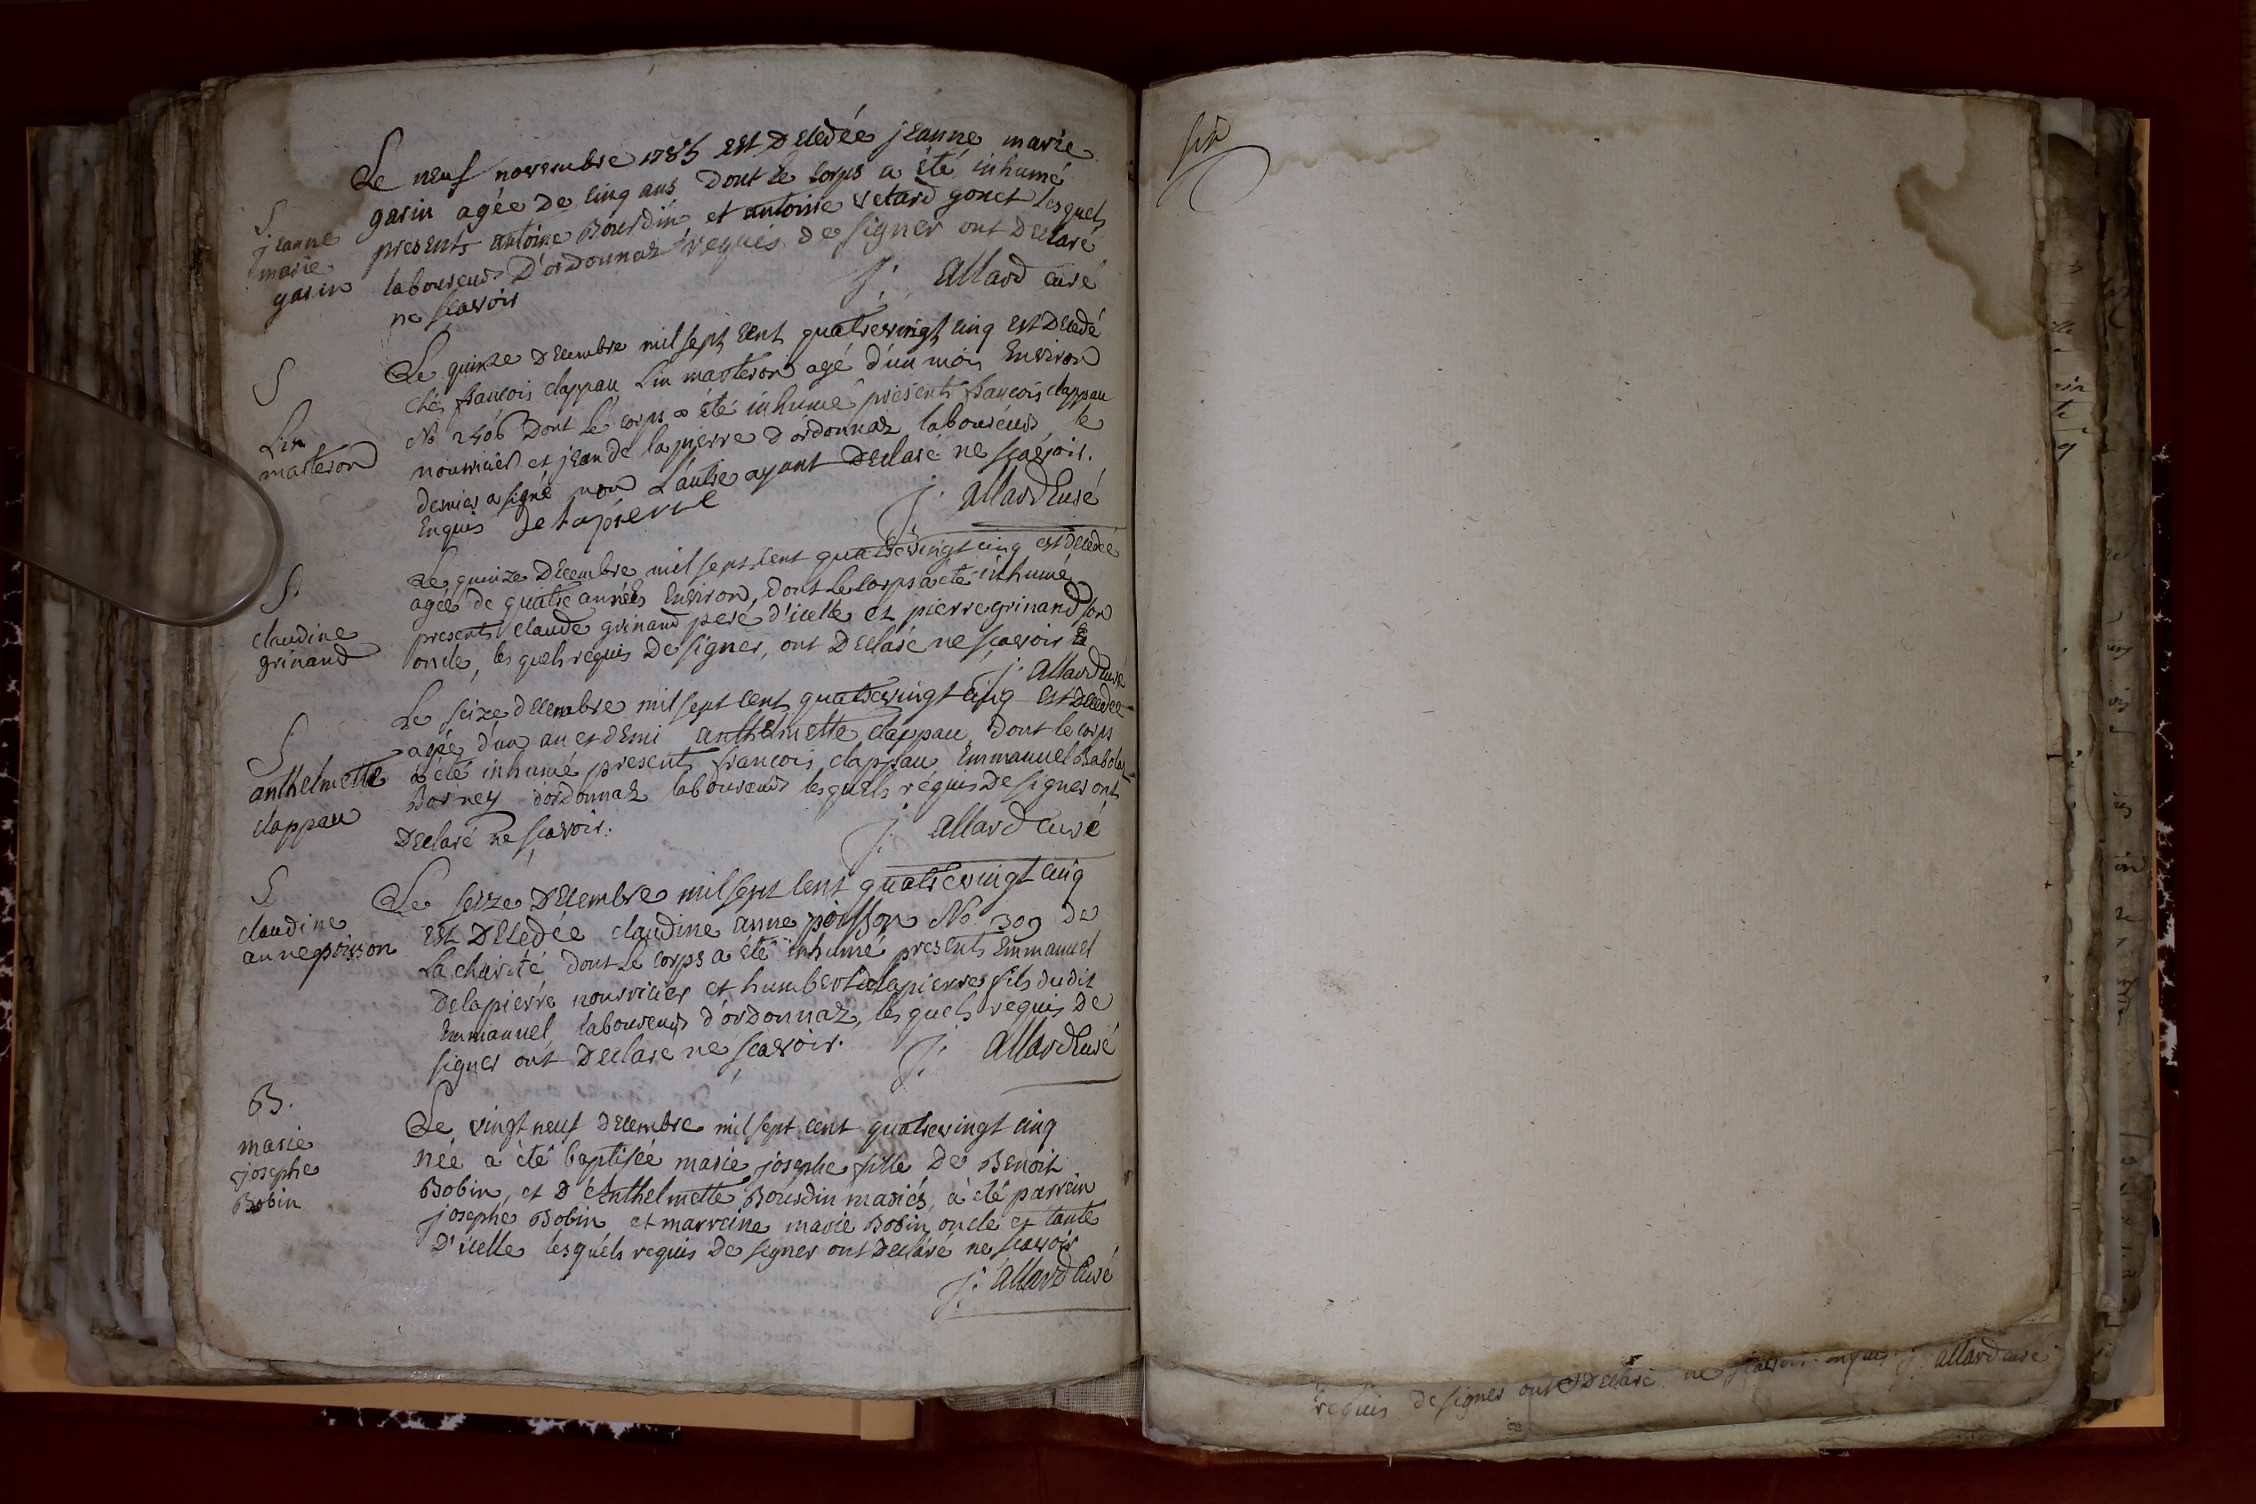 Le neuf novembre 1785 est Decedée jeanne marie
garin agée De cinq ans Dont le corps a été inhumé
presents antoine Bourdin et antoine vetard gonet lesquels
laboureurs D'ordonnaz requis de signer ont Declaré
ne scavoir
J. Allard curé
S
jeanne
marie
garin
Le quinze Decembre mil sept cent quatrevingt cinq est Decedé
chés francois clappau Lin masteron agé d'un mois Environ
No 2406 Dont le corps a été inhumé presents francois clappau
nourricier et jean de la pierre d'ordonnaz laboureurs le
dernier a signé non L'autre ayant Declaré ne scavoir.
Enquis De lapierre
J. Allard Curé
S
Lin
masteron
Le quinze Decembre mil sept cent quatrevingt cinq est decedée
agée de quatre années Environ, dont le corps a été inhumé
presents claude grinand pere d'icelle et pierre grinand son
oncle, lesquels requis De signer, ont Declaré ne scavoir
J. Allard Curé
S.
claudine
grinand
Le seize decembre mil sept cent quatrevingt cinq est Decedée
agée d'un an et demi anthelmette clappau Dont le corps
a été inhumé presents francois clappau Emmanuel Babolat
Borney d'ordonnaz laboureurs lesquels réquis De signer ont
Declaré ne scavoir.
J. Allard Curé
S
anthelmette
clappau
Le seize Decembre mil sept cent quatrevingt cinq
est Decedée claudine anne poisson No 309 De
La charité dont le corps a été inhumé presents Emmanuel
Delapierre nourricier et humbert delapierre fils dudit
Emmanuel laboureurs d'ordonnaz, lesquels requis De
signer ont Declaré ne scavoir.
J. Allard Curé
S
claudine
anne poisson
Le vingt neuf decembre mil sept cent quatrevingt cinq
née a été baptisée marie josephe fille De Benoit
Bobin, et D'Anthelmette Bourdin mariés, a été parrein
josephe Bobin et marreine marie Bobin oncle et tante
D'icelle lesquels requis De signer ont Declaré ne scavoir
J. Allard Curé
B.
marie
josephe
Bobin
six
requis de signer ont Declaré ne scavoir enquis J. allard curé